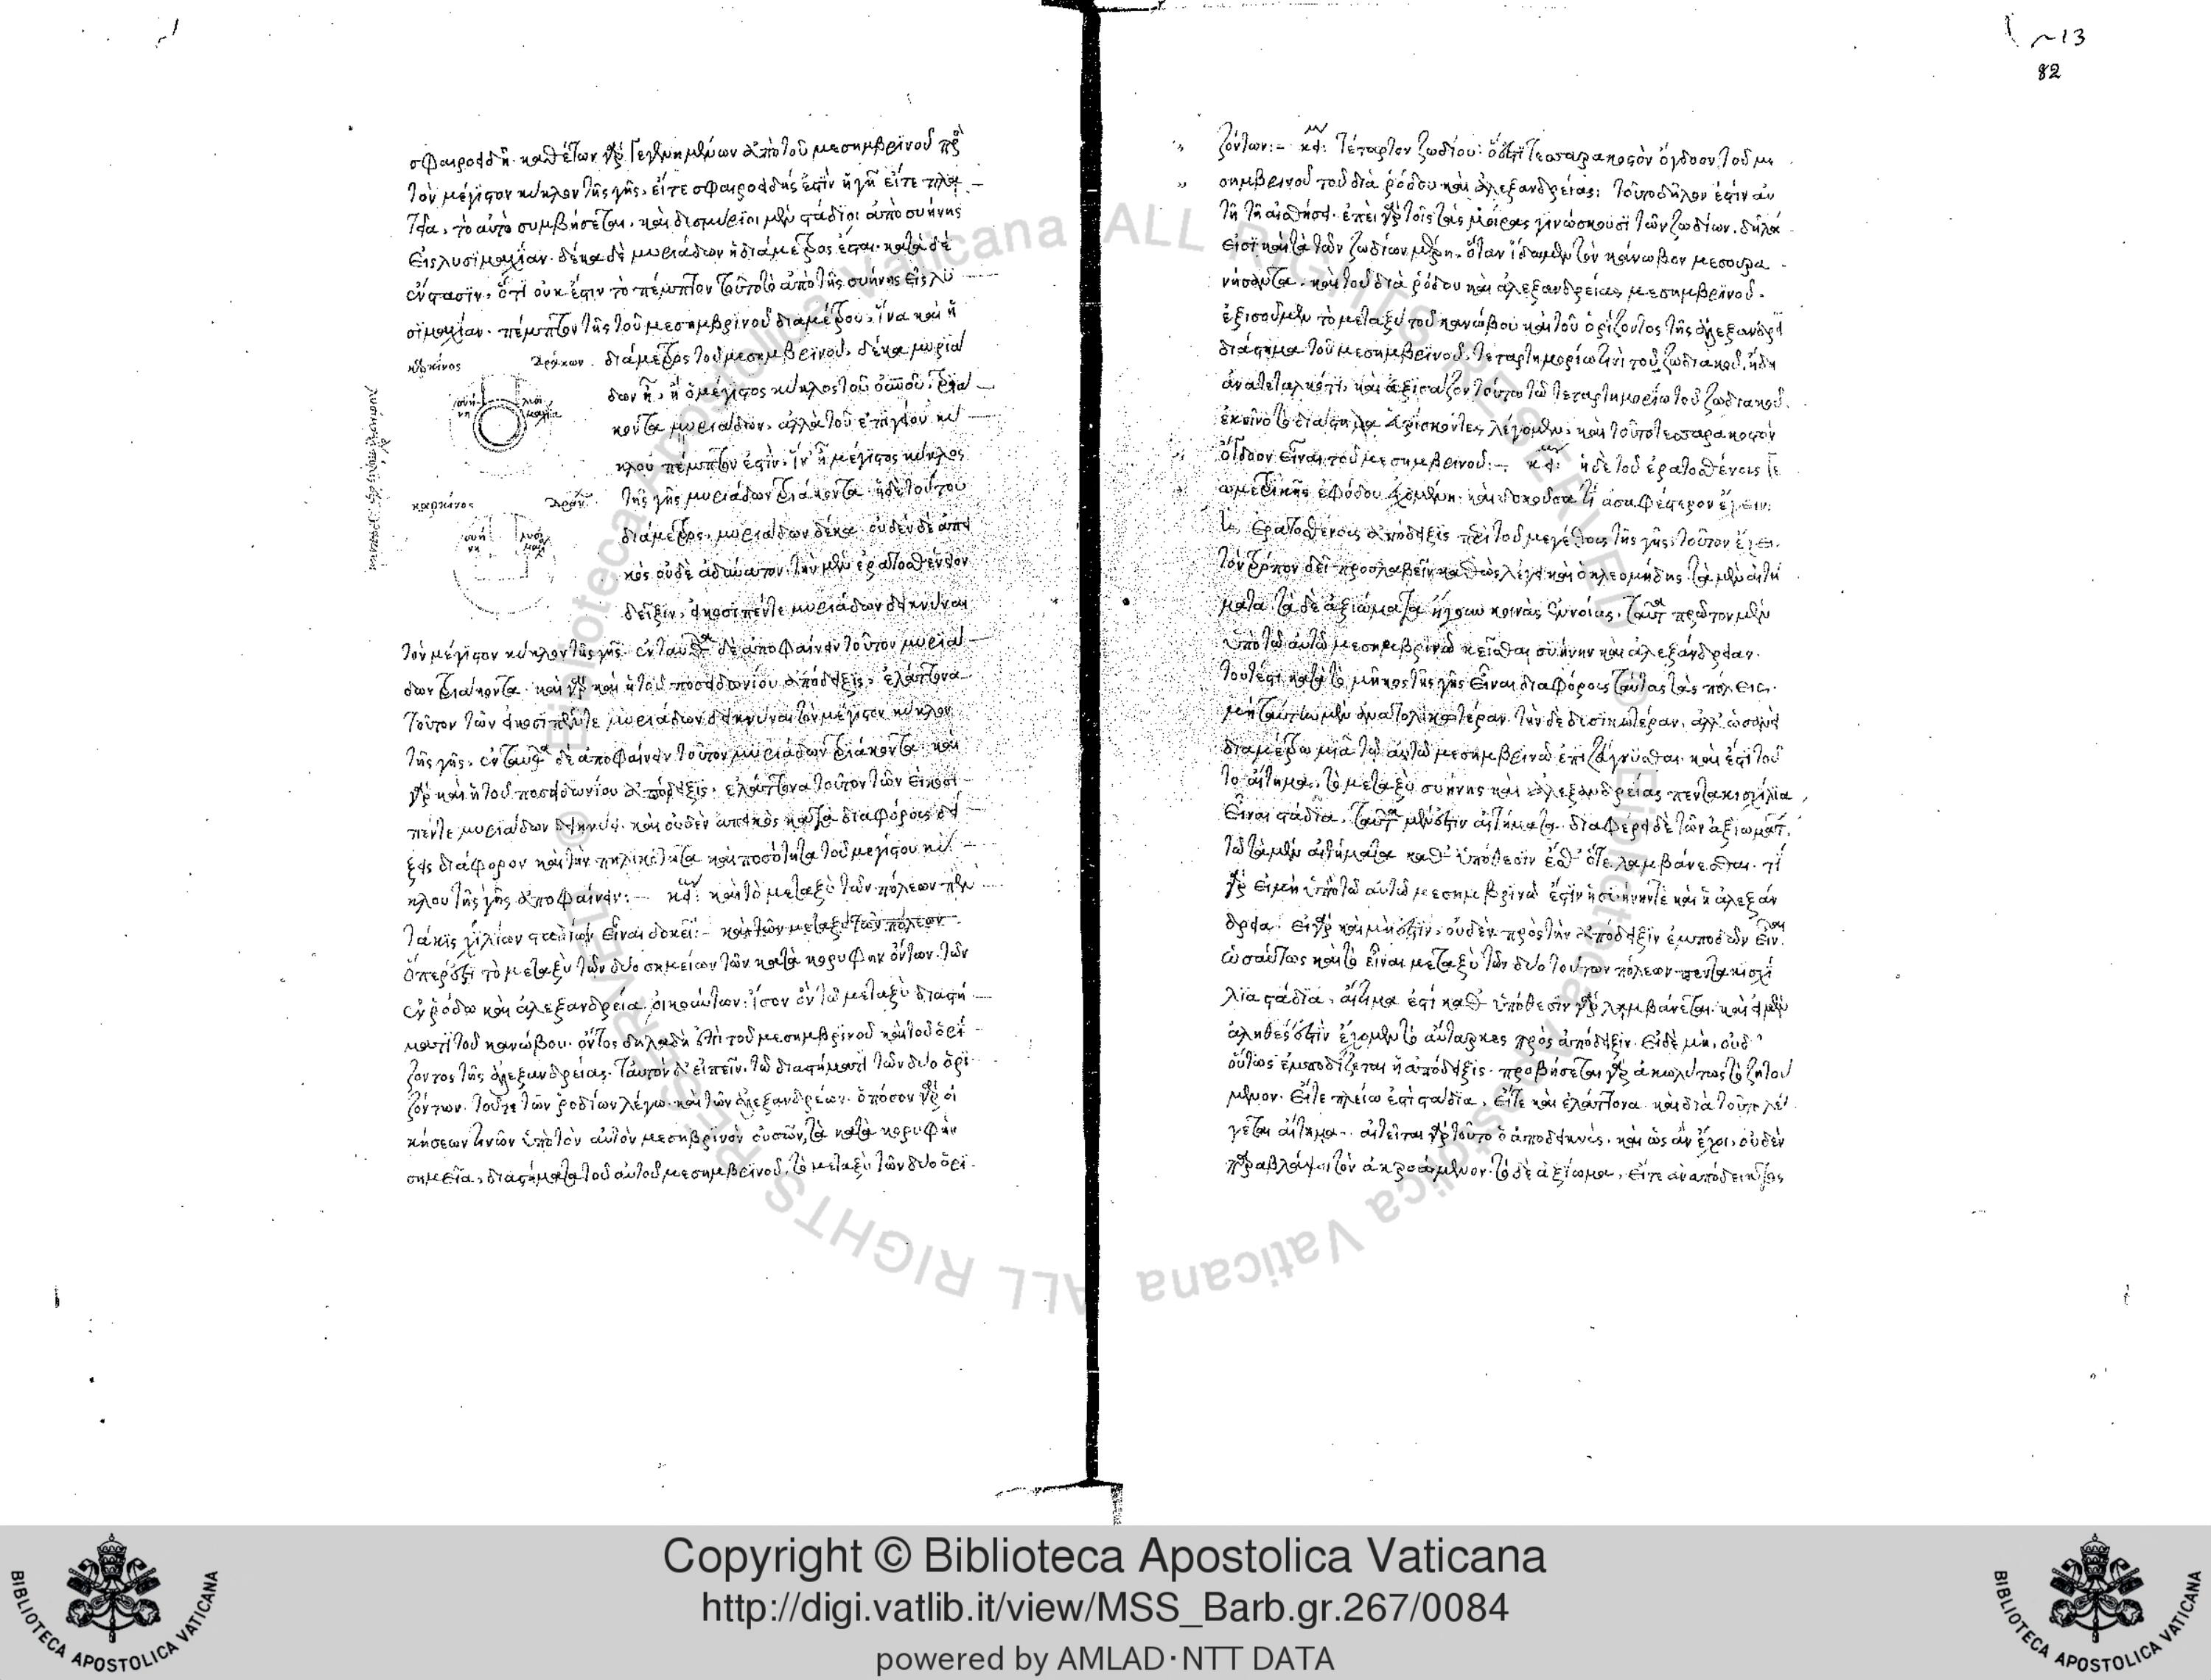 ~13
82
τὸν μέγιστον κύκλον τῆς γῆς, εἴτε σφαιροειδής ἐστιν ἡ γῆ εἴτε
τὸ αὐτὸ συμβήσεται. καὶ δισμύριοι μὲν στάδιοι ἀπὸ συήνης
εἰς λυσιμαχίαν. δέκα δὲ μυριάδων ἡ διάμετρος ἔσται. κατὰ δὲ
ὅτι οὐκ ἔστιν τὸ πέμπτον τοῦτο τὸ ἀπὸ τῆς συήνης εἰς λυ
σιμαχίαν. πέμπτον τῆς τοῦ μεσημβρινοῦ διαμέτρου. ἵνα καὶ ἡ
καρκίνος
δράκων
διάμετρος τοῦ μεσημβρινοῦ, δέκα μυριά
δων ᾖ, ἢ ὁ μέγιστος κύκλος τοῦ
κοντα μυριάδων. ἀλλὰ τοῦ
κλου πέμπτον ἐστίν. ἵν' ᾖ μέγιστος κύκλος
τῆς γῆς μυριάδων τριάκοντα. ἡ δὲ τούτου
διάμετρος, μυριάδων δέκα. οὐδὲν δὲ ἀπει
κὸς οὐδὲ ἀδύνατον. τὴν μὲν
δεῖξιν, εἰκοσιπέντε μυριάδων δεικνύναι
καρκίνος
συή
νη
τὸν μέγιστον κύκλον τῆς γῆς. ἐνταῦθα δὲ ἀποφαίνειν τοῦτον μυριά
δων τριάκοντα. καὶ γὰρ καὶ ἡ τοῦ ποσειδωνίου ἀπόδειξις, ἐλάττονα
τοῦτον τῶν εἰκοσιπέντε μυριάδων δεικνύναι τὸν μέγιστον κύκλον
τῆς γῆς, ἐνταῦθα δὲ ἀποφαίνειν τοῦτον μυριάδων τριάκοντα. καὶ
γὰρ καὶ ἡ τοῦ ποσειδωνίου ἀπόδειξις, ἐλάττονα τοῦτον τῶν εἰκοσι
πέντε μυριάδων δείκνυσι. καὶ οὐδὲν ἀπεικὸς κατὰ διαφόρους δεί
ξεις διάφορον καὶ τὴν πηλικότητα καὶ ποσότητα τοῦ μεγίστου κύ
κλου τῆς γῆς ἀποφαίνειν:- κείμενον καὶ τὸ μεταξὺ τῶν πόλεων πεν
τάκις χιλίων σταδίων εἶναι δοκεῖ:- καὶ τῶν μεταξὺ τῶν πόλεων
ὅπερ ἐστὶ τὸ μεταξὺ τῶν δύο σημείων τῶν κατὰ κορυφὴν ὄντων. τῶν
ἐν ῥόδῳ καὶ ἀλεξανδρείᾳ οἰκούντων. ἴσον ὂν τῷ μεταξὺ διαστή
ματι τοῦ κανώβου. ὄντος δηλαδὴ ἐπὶ τοῦ μεσημβρινοῦ καὶ τοῦ ὁρί
ζοντος τῆς ἀλεξανδρείας. ταὐτὸν δ' εἰπεῖν, τῷ διαστήματι τῶν δύο ὁρι
ζόντων. τοῦ τε τῶν ῥοδίων λέγω καὶ τῶν ἀλεξανδρέων. ὁπόσον γὰρ οἰ
κήσεων τινῶν ὑπὸ τὸν αὐτὸν μεσημβρινὸν οὐσῶν, τὰ κατὰ κορυφὴν
σημεῖα, διαστήματα τοῦ αὐτοῦ μεσημβρινοῦ, τὸ μεταξὺ τῶν δύο ὁρι
ζόντων:- κείμενον τέταρτον ζωδίου. ὅ ἐστι τεσσαρακοστὸν ὄγδοον τοῦ με
σημβρινοῦ τοῦ διὰ ῥόδου καὶ ἀλεξανδρείας: τοῦτο δῆλον ἐστὶν αὐ
τῇ τῇ αἰσθήσει. ἐπεὶ γὰρ τοῖς τὰς μοίρας γινώσκουσι τῶν ζωδίων, δῆλά
εἰσι καὶ τὰ τῶν ζωδίων μέρη. ὅταν ἴδωμεν τὸν κάνωβον μεσουρα
νήσαντα. καὶ τοῦ διὰ ῥόδου καὶ ἀλεξανδρείας μεσημβρινοῦ.
ἐξισοῦμεν τὸ μεταξὺ τοῦ κανώβου καὶ τοῦ ὁρίζοντος τῆς ἀλεξανδρεί
διάστημα τοῦ μεσημβρινοῦ, τεταρτημορίῳ τινὶ τοῦ ζωδιακοῦ, ἤδη
ἀνατεταλκότι. καὶ ἐξισάζον τούτῳ τῷ τεταρτημορίῳ τοῦ ζωδιακοῦ.
ἐκεῖνο τὸ διάστημα εὑρίσκοντες λέγομεν, καὶ τοῦτο τεσσαρακοστὸν
ὄγδοον εἶναι τοῦ μεσημβρινοῦ:- κείμενον ἡ δὲ τοῦ ἐρατοσθένους γε
ωμετρικῆς ἐφόδου ἐχομένη. καὶ δοκοῦσα τι ἀσαφέστερον ἔχειν:
ἐρατοσθένους ἀπόδειξις περὶ τοῦ μεγέθους τῆς γῆς, τοῦτον ἔχει
τὸν τρόπον. δεῖ προσλαβεῖν καθὼς λέγει καὶ ὁ κλεομήδης. τὰ μὲν αἰτή
ματα. τὰ δὲ ἀξιώματα ἤγουν κοινὰς ἐννοίας. ταῦτα πρῶτον μὲν
ὑπὸ τῷ αὐτῷ μεσημβρινῷ κεῖσθαι συήνην καὶ ἀλεξάνδρειαν.
τουτέστι κατὰ τὸ μῆκος τῆς γῆς εἶναι διαφόρους ταύτας τὰς πόλεις.
μὴ ταύτην μὲν ἀνατολικωτέραν. τὴν δὲ δυτικωτέραν. ἀλλ'
διαμέτρῳ μιᾷ τῷ αὐτῷ μεσημβρινῷ ἐπιζεύγνυσθαι. καὶ ἔστι τοῦ
το αἴτημα. τὸ μεταξὺ συήνης καὶ ἀλεξανδρείας πεντακισχίλια
εἶναι στάδια. ταῦτα μέν ἐστιν αἰτήματα. διαφέρει δὲ τῶν ἀξιωμάτ
τῷ τὰ μὲν αἰτήματα καθ' ὑπόθεσιν ἔσθ' ὅτε λαμβάνεσθαι. τί
γὰρ εἰ μὴ ὑπὸ τῷ αὐτῷ μεσημβρινῷ ἐστὶν ἡ συήνη τε καὶ ἡ ἀλεξάν
δρεια. εἰ γὰρ καὶ μὴ ἔστιν, οὐδὲν πρὸς τὴν ἀπόδειξιν ἐμποδὼν εἶναι.
ὡσαύτως καὶ τὸ εἶναι μεταξὺ τῶν δύο τούτων πόλεων πεντακισχί
λια στάδια, αἴτημα ἐστί. καθ' ὑπόθεσιν γὰρ λαμβάνεται. καὶ εἰ μὲν
ἀληθές ἐστιν ἔχομεν τὸ αὔταρκες πρὸς ἀπόδειξιν. εἰ δὲ μὴ, οὐδ'
οὕτως ἐμποδίζεται ἡ ἀπόδειξις. προβήσεται γὰρ ἀκωλύτως τὸ ζητού
μενον. εἴτε πλείω ἐστὶ στάδια, εἴτε καὶ ἐλάττονα. καὶ διὰ τοῦτο λέ
γεται αἴτημα. αἰτεῖται γὰρ τοῦτο ὁ ἀποδεικνύς. καὶ ὡς ἂν ἔχοι, οὐδὲν
παραβλάψει τὸν ἀκροώμενον. τὸ δὲ ἀξίωμα, εἴτε ἀναπόδεικτος
Copyright © Biblioteca Apostolica Vaticana
http://digi.vatlib.it/view/MSS_Barb.gr.267/0084
powered by AMLAD·NTT DATA
BIBLIOTECA APOSTOLICA VATICANA
BIBLIOTECA APOSTOLICA VATICANA